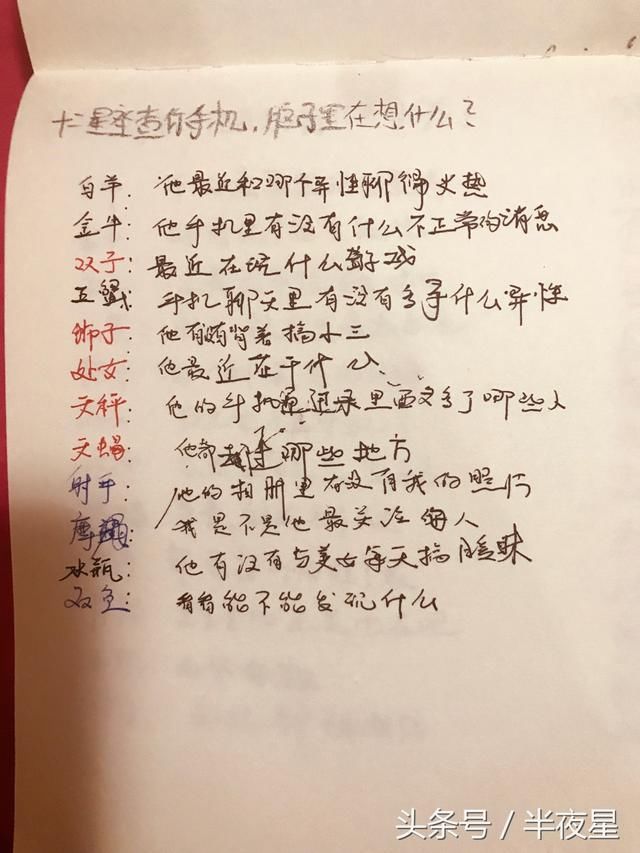 十二星座查你手机,脑子里在想什么?
白羊: 他最近和哪个异性聊得火热
金牛: 他手机里有没有什么不正常的消息
双子: 最近在玩什么游戏
巨蟹: 手机聊天里有没有多余什么异性
狮子: 他有没有背着搞小三
处女: 他最近在干什么
天秤: 他的手机通讯录里面又多了哪些人
天蝎: 他都去过哪些地方
射手: 他的相册里有没有我的照片
摩羯: 我是不是他最关注的人
水瓶: 他有没有与美女每天搞暧昧
双鱼: 看看能不能发现什么
头条号 / 半夜星